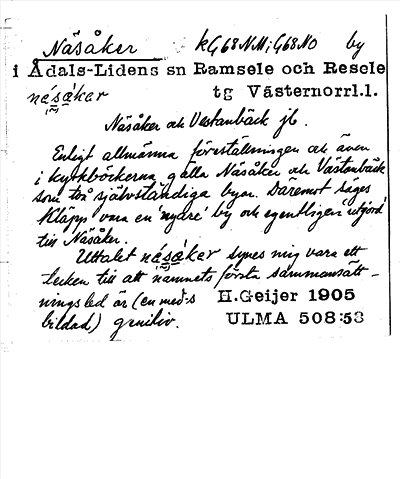 Näsåker kG68NM; G68NO by
i Ådals-Lidens sn Ramsele och Resele
näsåker tg Västernorrl.l.
Näsåker och Västanbäck jb.
Enligt allmänna föreställningen och även
i kyrkböckerna gälla Näsåker och Västanbäck
som två självständiga byar. Däremot säges
Kläpp vara en 'nyare' by och egentligen 'utjord'
till Näsåker.
Uttalet näsåker synes mig vara ett
tecken till att namnets första sammansätt-
ningsled är (en med -s H.Geijer 1905
bildad) genitiv. ULMA 508:53